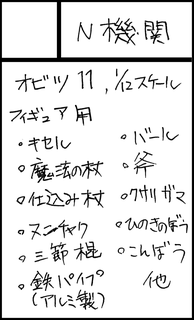 N機関
オビツ11,1/12スケール
フィギュア用
◦キセル
◦魔法の杖
◦仕込み杖
◦ヌンチャク
◦三節棍
◦鉄パイプ
(アルミ製)
◦バール
◦斧
◦クサリガマ
◦ひのきのぼう
◦こんぼう
他